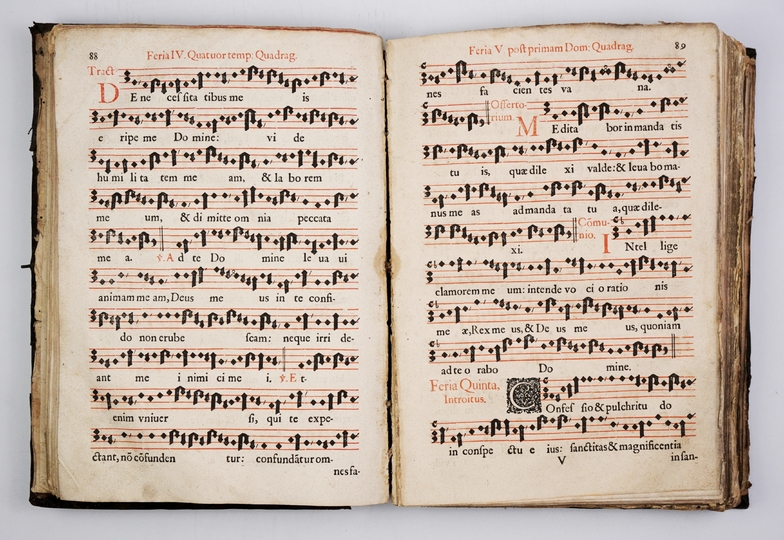 88 Feria IV. Quatuor temp: Quadrag.
Tract
DE ne ces sita tibus me is
e ripe me Do mine: vi de
hu mi li ta tem me am, & la bo rem
me um, & di mitte om nia peccata
me a. ℣. A d te Do mine le ua ui
animam me am, Deus me us in te confi-
do non erube scam: neque irri de-
ant me i nimi ci me i. ℣. E t-
enim vniuer si, qui te expe-
ctant, nō cōfunden tur: confundātur om-
nes fa-
Feria V. post primam Dom: Quadrag. 89
nes fa cien tes va na.
Offerto-
rium. MEdita bor in manda tis
tu is, quæ dile xi valde: & leua bo ma-
nus me as ad manda ta tu a, quæ dile-
xi.
Cōmu-
nio. INtel lige
clamorem me um: intende vo ci o ratio nis
me æ, Rex me us, & De us me us, quoniam
ad te o rabo Do mine.
Feria Quinta.
Introitus.
COnfes sio & pulchritu do
in conspe ctu e ius: sanctitas & magnificentia
V in san-